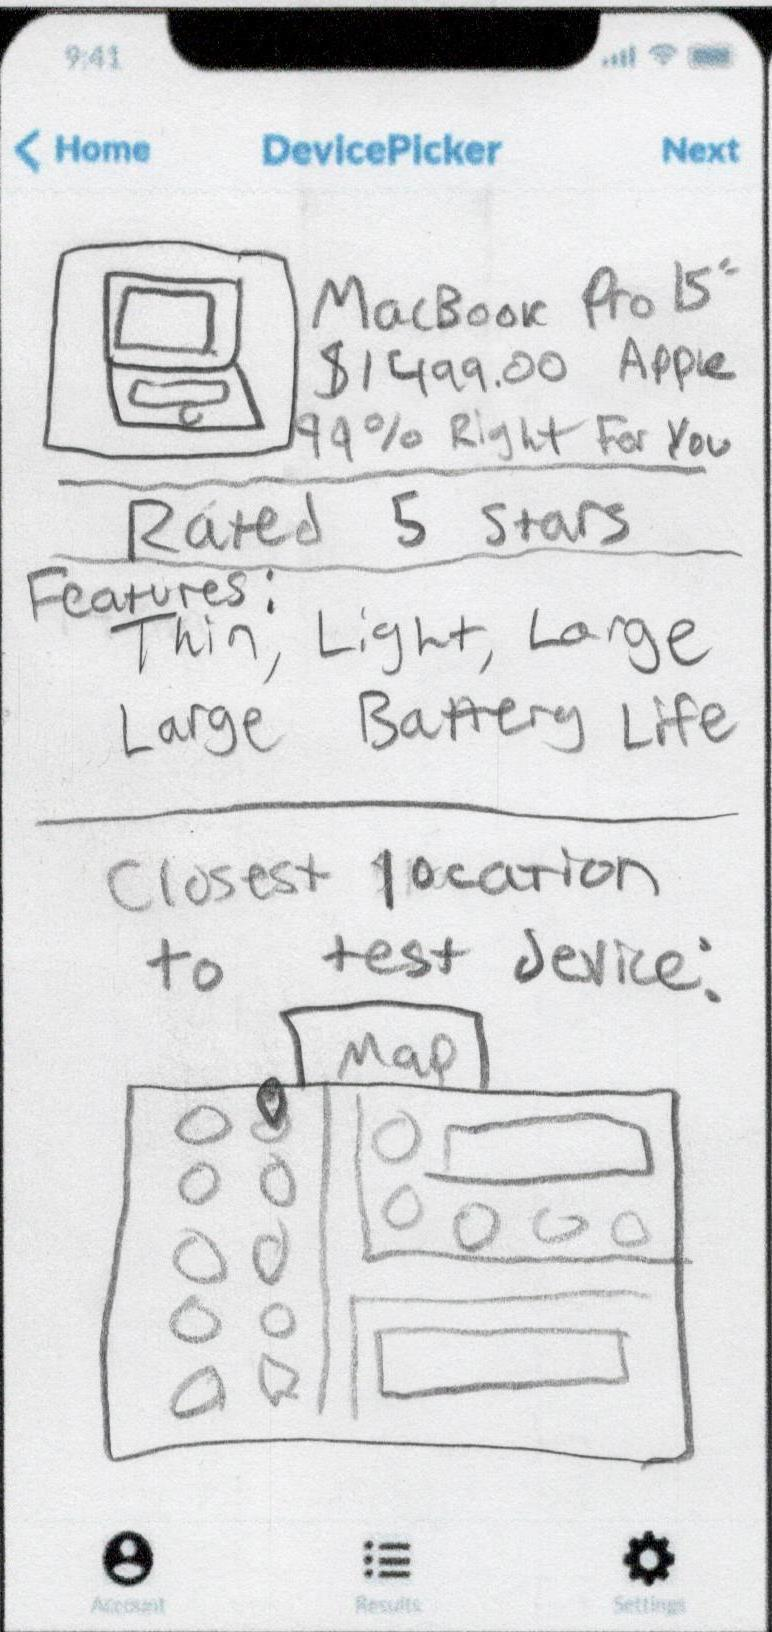 9:41
Home DevicePicker Next
MacBook Pro 15"
$1499.00 Apple
99% Right For You
Rated 5 Stars
Features:
Thin, Light, Large
Large Battery Life
Closest location
to test device:
Map
Account Results Settings